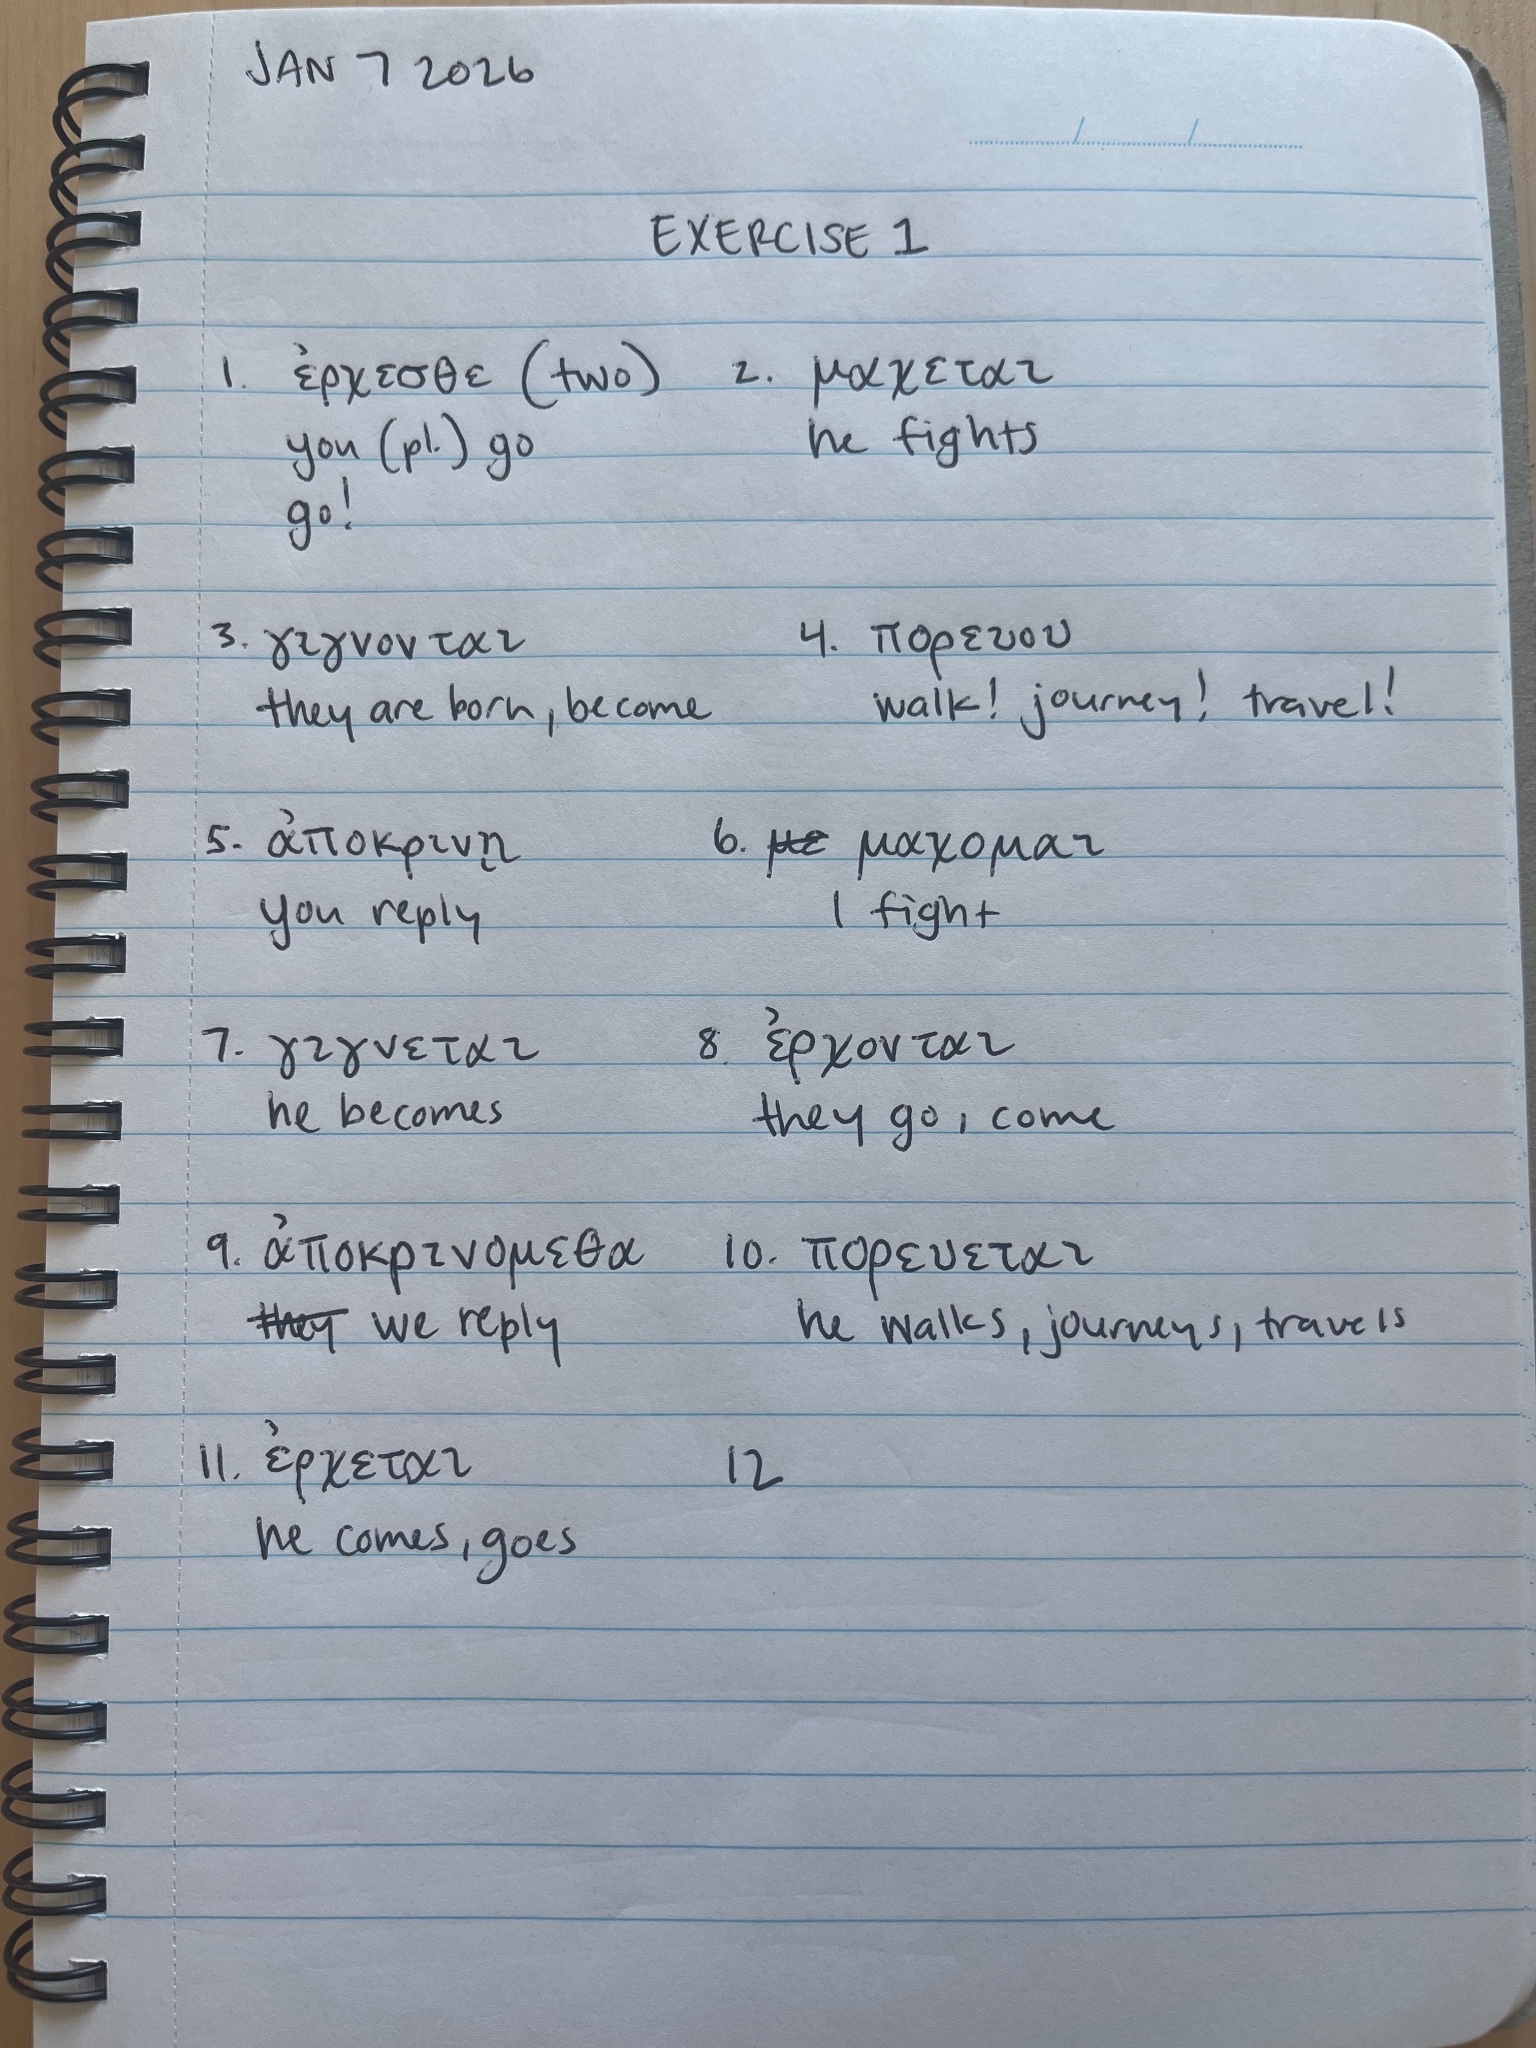 JAN 7 2026
EXERCISE 1
1. ἐρχεσθε (two) 2. μαχεται
you (pl.) go he fights
go!
3. γιγνονται 4. πορευου
they are born, become walk! journey! travel!
5. ἀποκρινῃ 6. με μαχομαι
you reply I fight
7. γιγνεται 8 ἐρχονται
he becomes they go, come
9. ἀποκρινομεθα 10. πορευεται
they we reply he walks, journeys, travels
11. ἐρχεται 12
he comes, goes